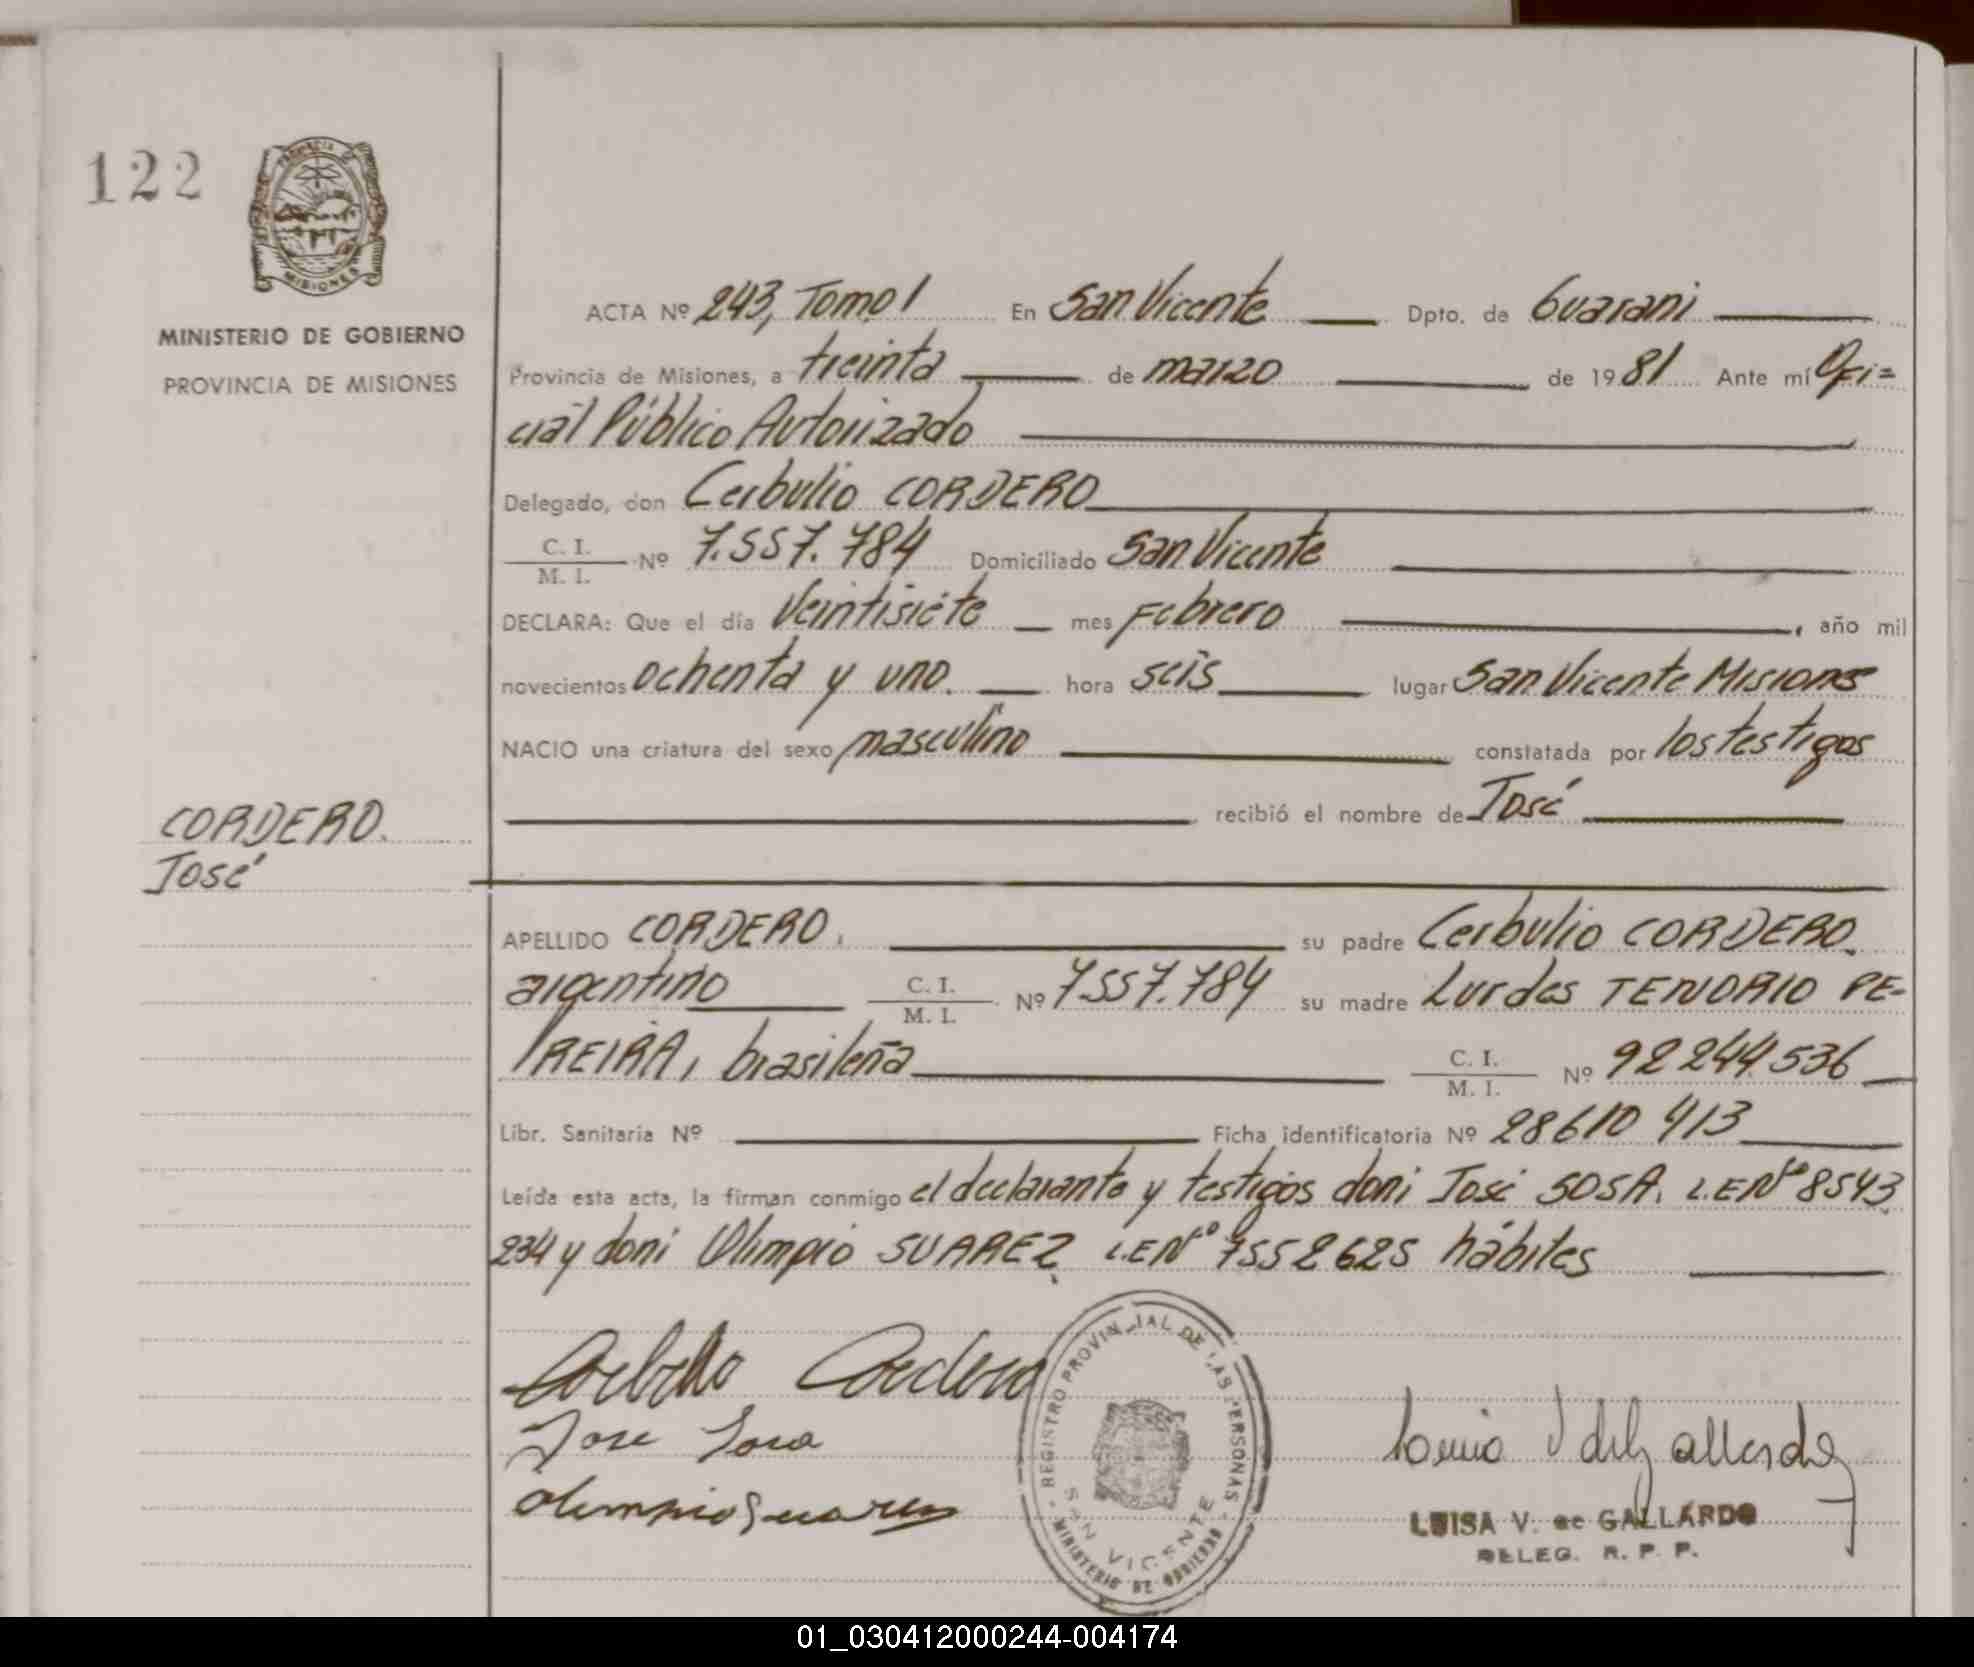 122
PROVINCIA DE
MISIONES
MINISTERIO DE GOBIERNO
PROVINCIA DE MISIONES
ACTA Nº 243, Tomo I En San Vicente Dpto. de Guarani
Provincia de Misiones, a treinta de marzo de 1981 Ante mí Ofi=
cial Público Autorizado
Delegado, don Cerbulio CORDERO
C. I.
M. I. Nº 7.557.784 Domiciliado San Vicente
DECLARA: Que el día Veintisiete mes Febrero, año mil
novecientos ochenta y uno. hora seis lugar San Vicente Misiones
NACIO una criatura del sexo masculino constatada por los testigos
recibió el nombre de José
CORDERO.
José
APELLIDO CORDERO, su padre Cerbulio CORDERO.
argentino C. I.
M. I. Nº 7.557.784 su madre Lurdes TENORIO PE-
REIRA, brasileña C. I.
M. I. Nº 92244.536
Libr. Sanitaria Nº Ficha identificatoria Nº 28610413
Leída esta acta, la firman conmigo el declarante y testigos don: José SOSA. L.E Nº 8543
234 y don: Olimpio SUAREZ, L.E Nº 7552625 hábiles
Cordero
Jose Sosa
Olimpio Suarez
REGISTRO PROVINCIAL DE LAS PERSONAS
SAN VICENTE
MINISTERIO DE GOBIERNO
LUISA V. de GALLARDO
DELEG. R. P. P.
01_030412000244-004174